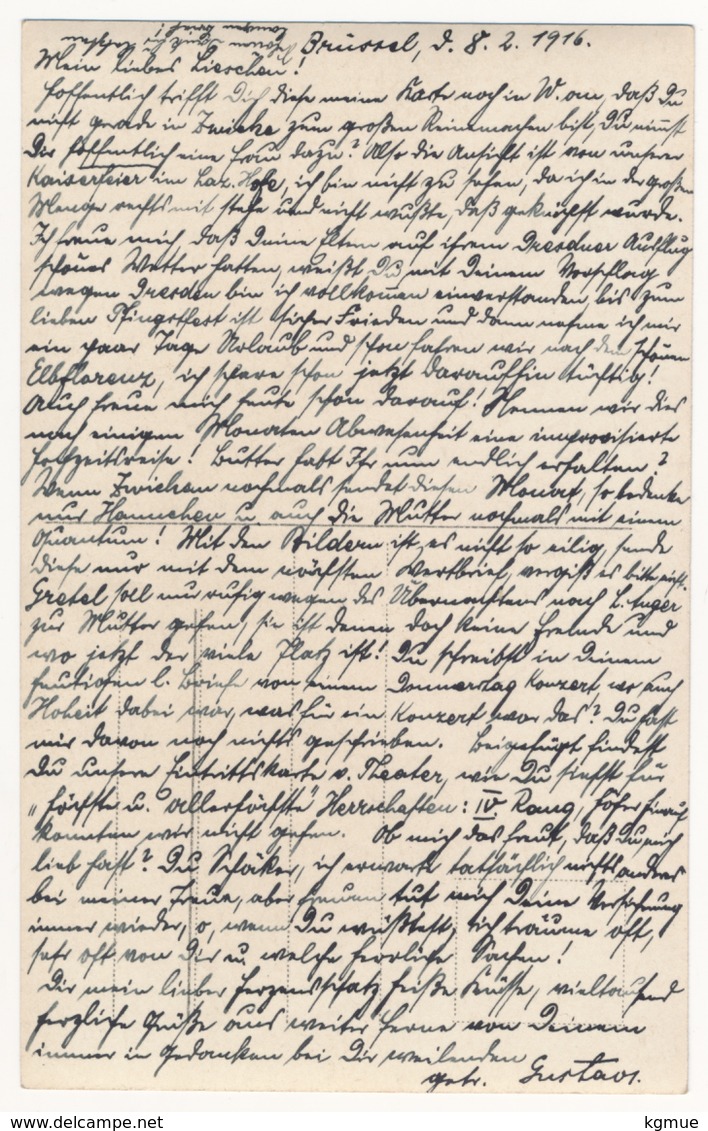 Brüssel, d. 8. 2. 1916.
Mein liebes Lieschen!
Hoffentlich trifft Dich diese meine Karte noch in W. an, daß Du
nicht gerade in Zwickau zum großen Reinemachen bist, Du nimmst
Dir hoffentlich eine Frau dazu? Also die Ansicht ist von unserer
Kaiserfeier im Laz. Hofe, ich bin nicht zu sehen, da ich in der großen
Menge rechts mit stehe und nicht wußte, daß geknipst wurde.
Ich freue mich, daß Deine Eltern auf ihrem Dresdner Ausflug
schönes Wetter hatten, weißt Du mit Deinem Vorschlag
wegen Dresden bin ich vollkommen einverstanden, bis zum
lieben Pfingstfest ist sicher Frieden und dann nehme ich mir
ein paar Tage Urlaub und schon fahren wir nach dem schönen
Elbflorenz, ich spare schon jetzt daraufhin tüchtig!
Auch freue mich heute schon darauf! Nennen wir dies
nach einigen Monaten Abwesenheit eine improvisierte
Hochzeitsreise! Butter habt Ihr nun endlich erhalten?
Wenn Zwickau nochmals sendet diesen Monat, so bedenke
nur Hannchen u. auch die Mutter nochmals mit einem
Quantum! Mit den Bildern ist es nicht so eilig, sende
diese nur mit dem nächsten Wertbrief, vergiß es bitte nicht.
Gretel soll nur ruhig wegen des Übernachtens nach L. Anger
zur Mutter gehen, sie ist denen doch keine Fremde und
wo jetzt der viele Platz ist! Du schreibst in Deinem
heutigen l. Briefe von einem Donnerstag Konzert, wo auch
Hoheit dabei war, was für ein Konzert war das? Du hast
mir davon noch nichts geschrieben. Beigefügt findest
Du unsere Eintrittskarte v. Theater, wie Du siehst für
"höchste u. allerhöchste" Herrschaften: IV Rang, höher hinauf
konnten wir nicht gehen. Ob mich das freut, daß Du mich
lieb hast? Du Schäker, ich erwarte tatsächlich nichts anderes
bei meiner Treue, aber freuen tut mich Deine Versicherung
immer wieder, o, wenn Du wüßtest, ich träume oft,
sehr oft von Dir u. welche herrliche Sachen!
Dir mein lieber Herzensschatz heiße Küsse, vieltausend
herzliche Grüße aus weiter Ferne von Deinem
immer in Gedanken bei Dir weilenden
getr. Gustav.
kgmue